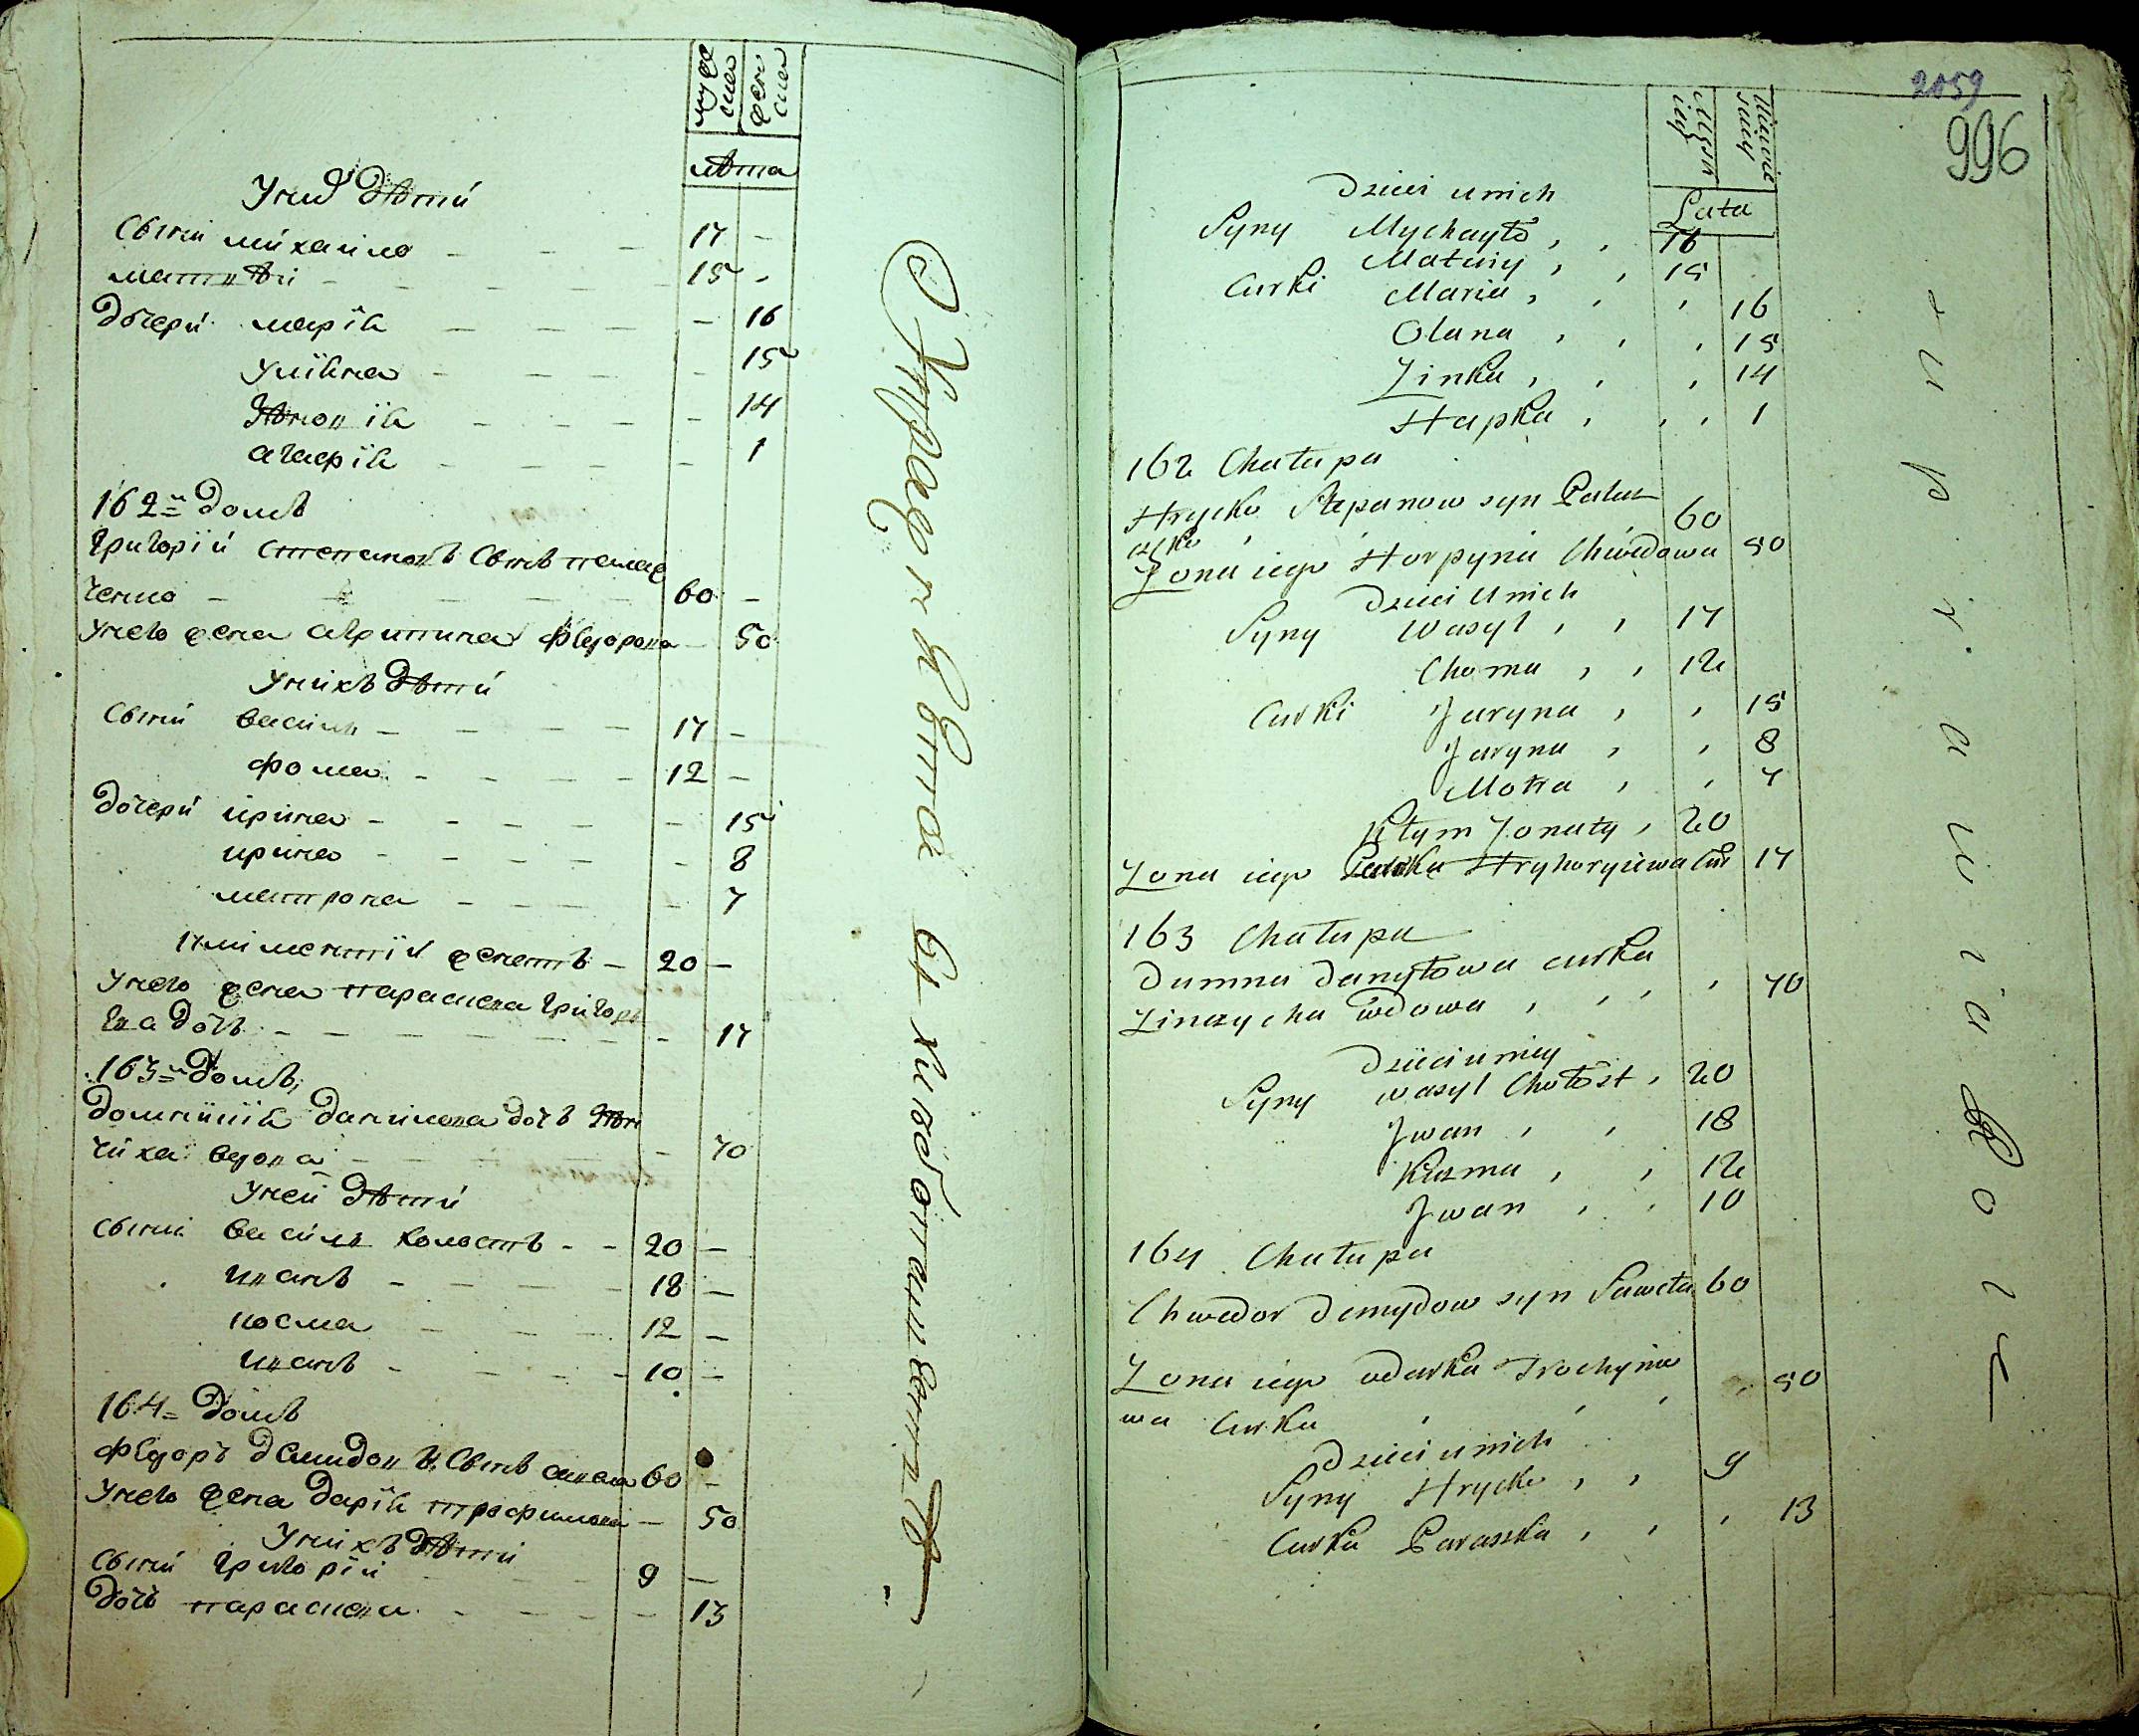 мужеска
женска
лѣта
У них дѣти
Сыни михаило - - - 17 -
маттѣи - - - 15 -
дочери марія - - - 16
уліяна - - - 15
Зѣновія - - - 14
агафія - - - 1
162й домъ
григорій степановъ сынъ палаж
ченко - - - 60 -
У него жена агрипина федорова - 50
У нихъ дѣти
Сыни василь - - - 17 -
фома - - - 12 -
дочери ирина - - - 15
ирина - - - 8
матрона - - - 7
климентій женатъ - 20 -
У него жена параскева григорь
ева дочъ - - - 17
163й домъ
домникія данилова дочъ Зѣн
чиха вдова - - - 70
У ней дѣти
Сыни василь холостъ - - 20 -
иванъ - - - 18 -
козма - - - 12 -
иванъ - - - 10 -
164й домъ
федоръ демидовъ сынъ савела 60 -
У него жена дарія трофимова - 50
У нихъ дѣти
Сыни григорій - - - 9 -
дочъ параскева - - - 13
2059
996
Męzkiey
Lata
Dzieci u nich
Syny Mychayło , , 16
Matwiy , , 15
Curki Maria , , , 16
Olana , , , 15
Zinka , , , 14
Hapka , , , 1
162 Chałupa
Hrycko Stepanow syn Palaz
czko , 60
Zona iego Horpyna Chwedowa 50
Dzieci u nich
Syny Wasyl , , 17
Choma , , 12
Curki Jaryna , , 15
Jaryna , , 8
Motra , , 7
Kłym Zonaty , 20
Zona iego Paraska Hryhoryiewa Cur 17
163 Chałupa
Dumna Danyłowa curka
Zinczycha wdowa , , , , 70
Dzieci u niey
Syny Wasyl Chołost , 20
Jwan , , 18
Kuzma , , 12
Jwan , , 10
164 Chałupa
Chwedor Demydow syn Saweła 60
Zona iego Odarka Trochymo
wa Curka , , , , 50
Dzieci u nich
Syny Hrycko , , 9
Curka Paraszka , , , 13